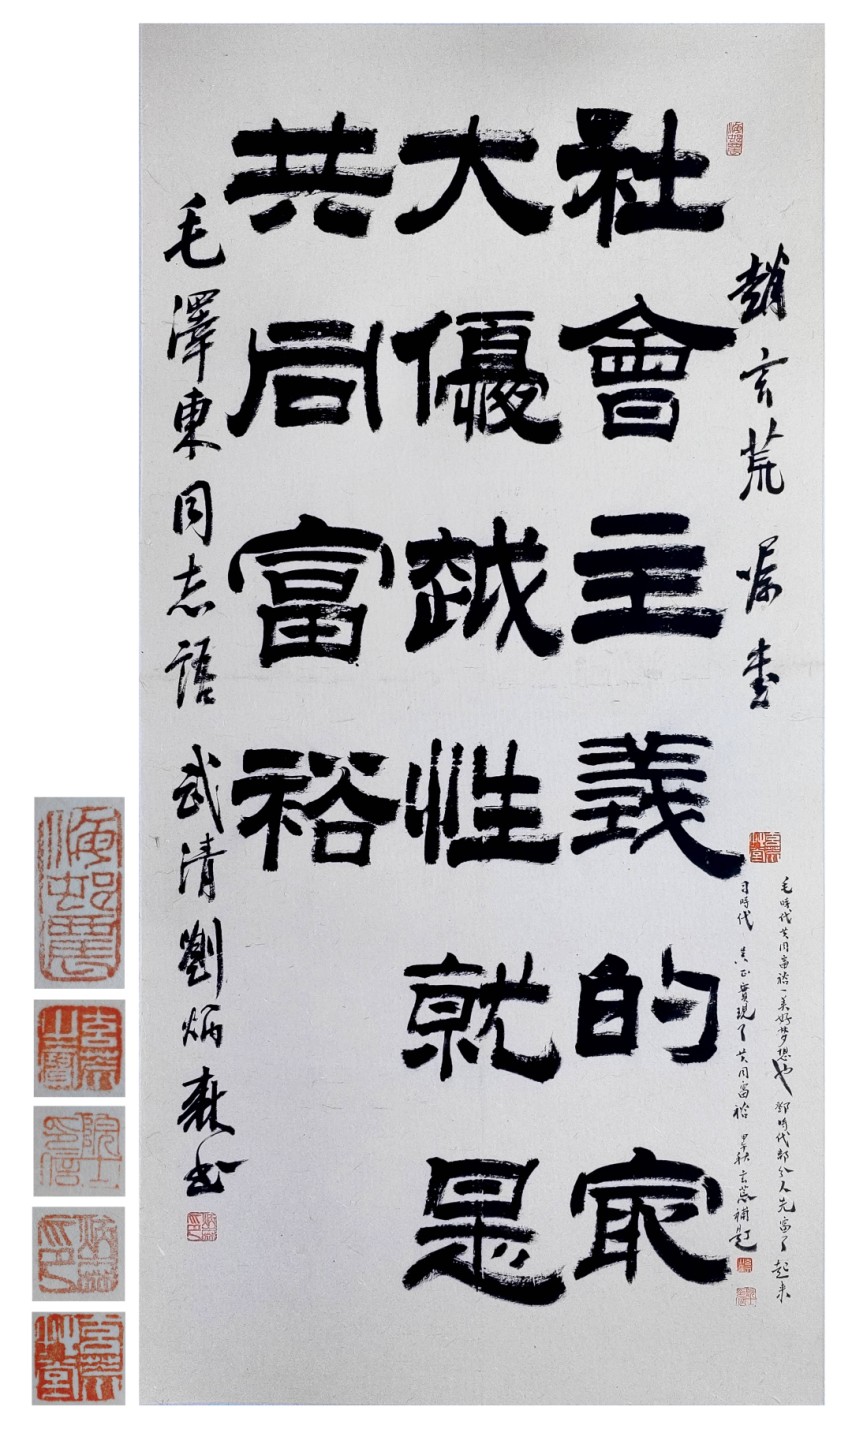 趙玄荒嘱書
毛時代共同富裕一美好梦想也 鄧時代部分人先富了起来
习時代 真正實現了共同富裕 玄荒補題
社會主義的最
大優越性就是
共同富裕
毛澤東同志語 武清劉炳森书
院士印信
炳森印